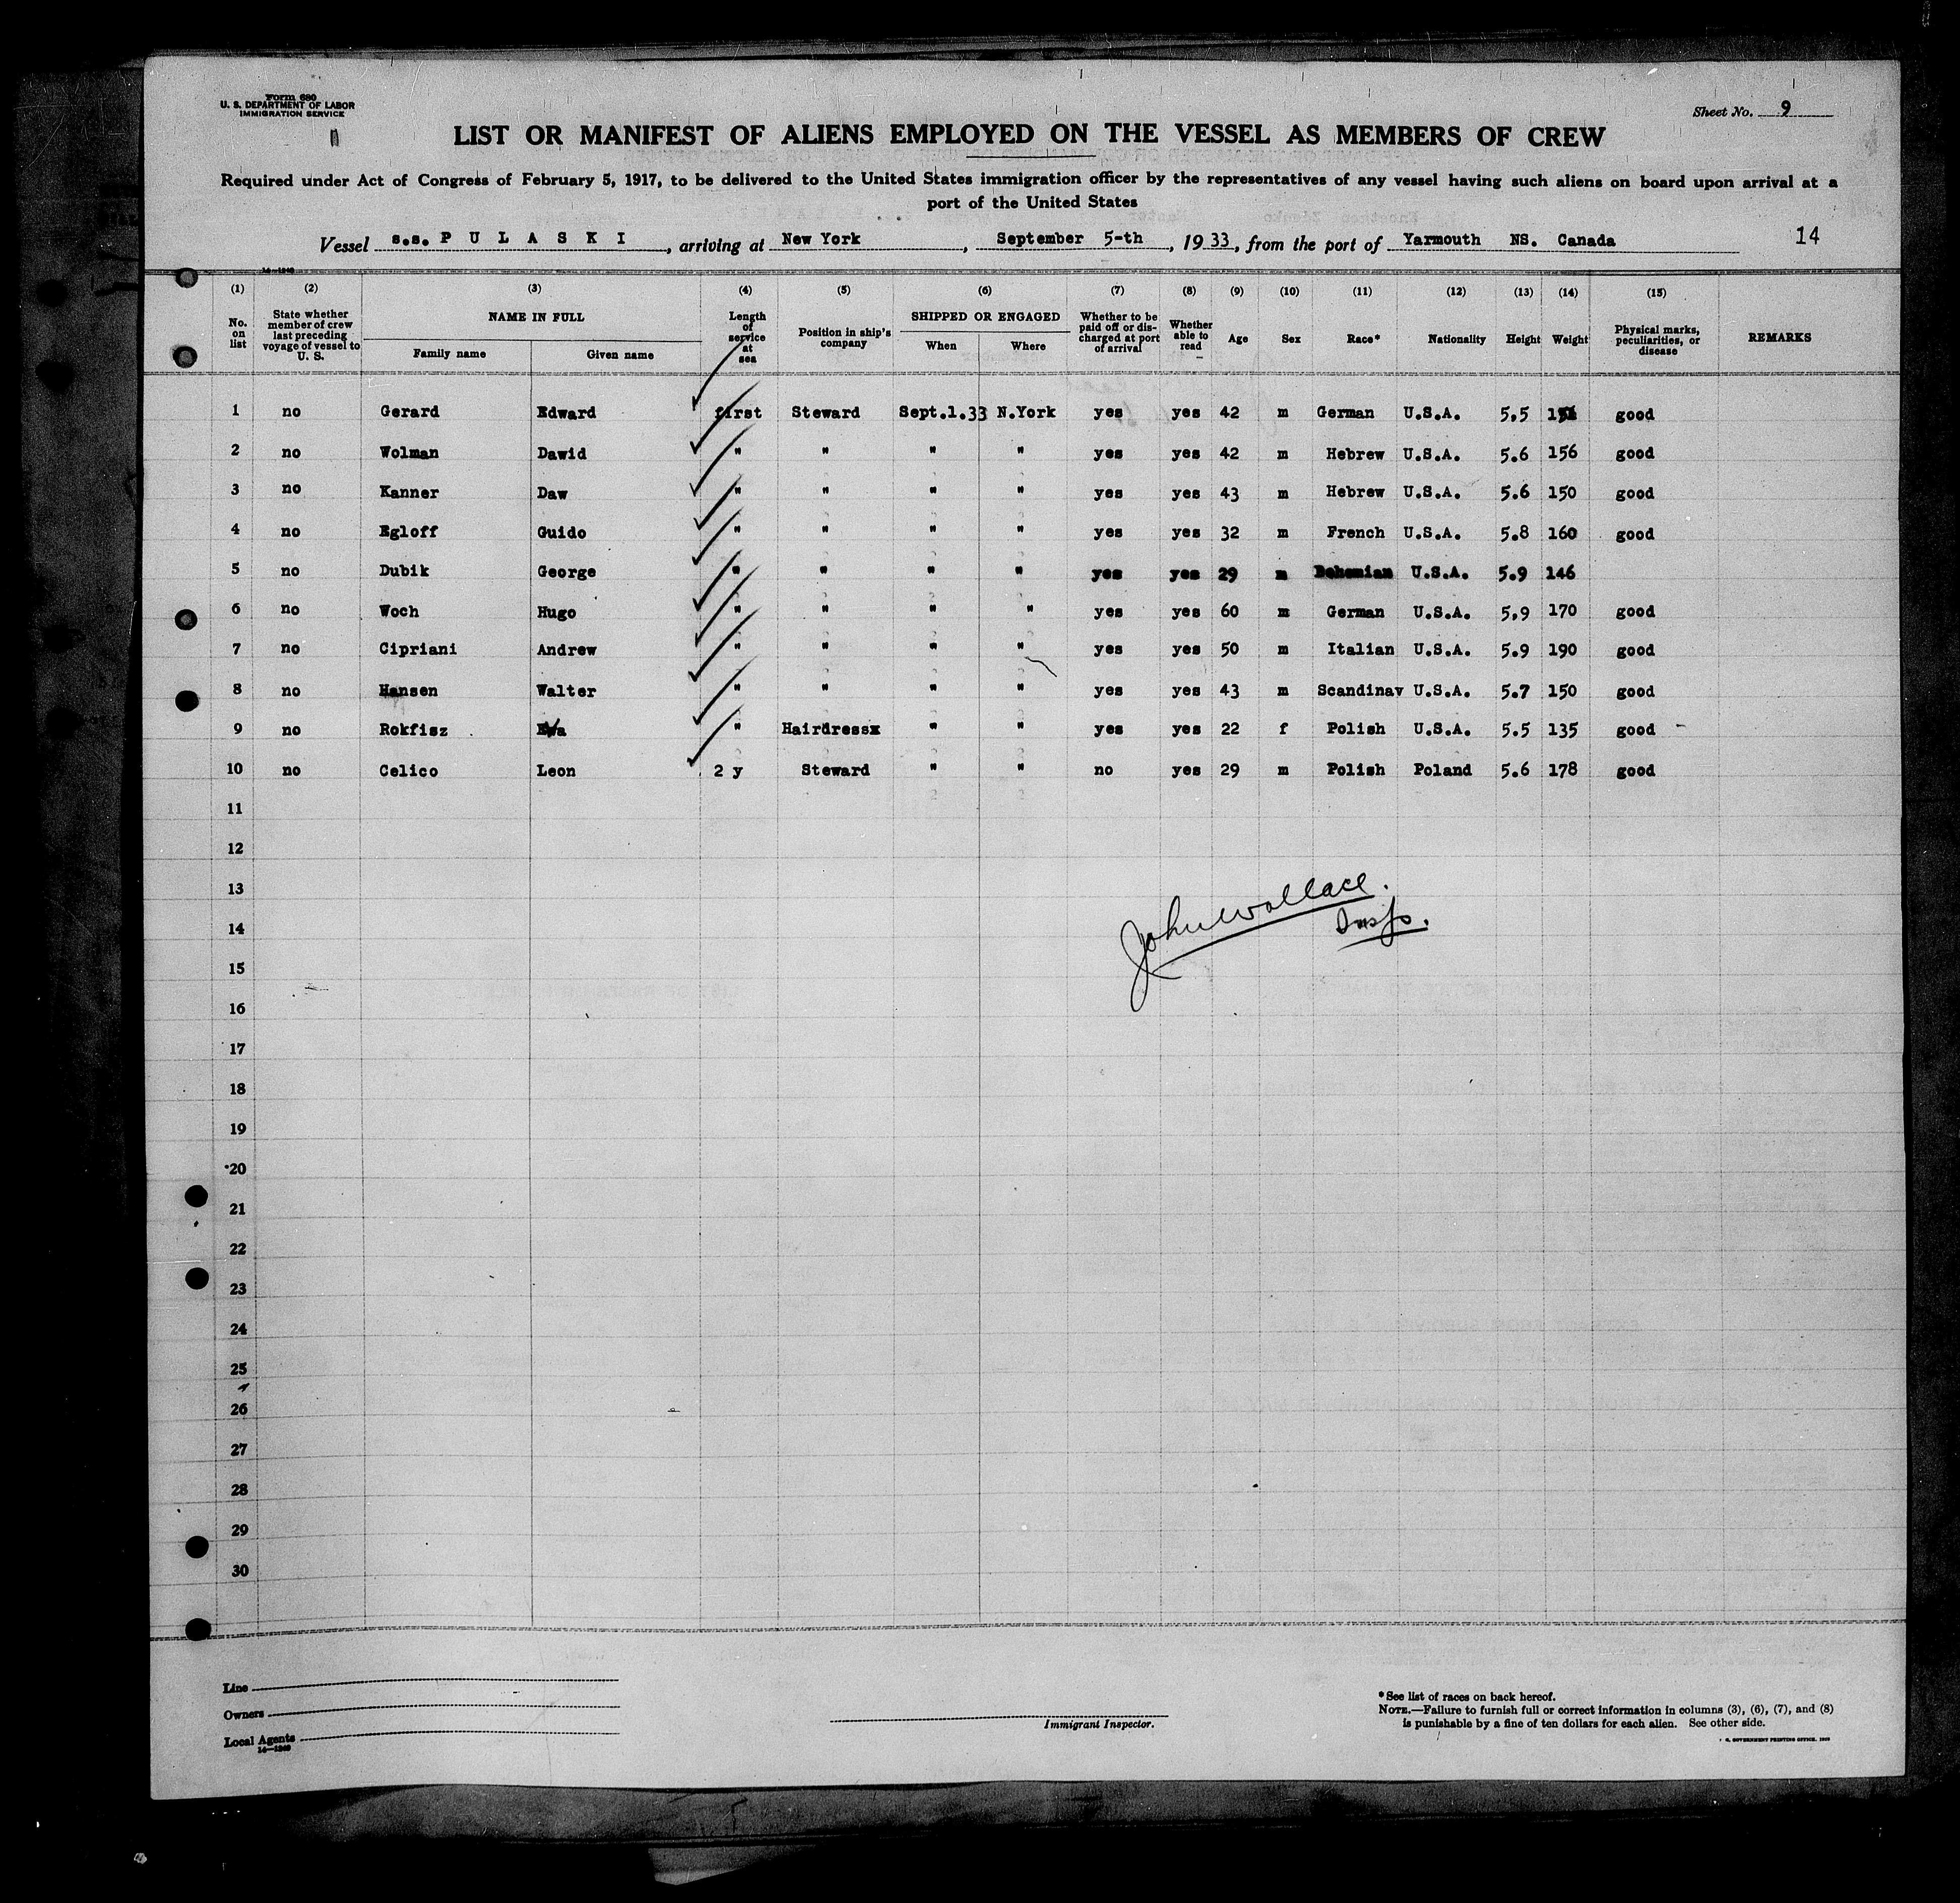 Form 680
U. S. DEPARTMENT OF LABOR
IMMIGRATION SERVICE
Sheet No. 9
LIST OR MANIFEST OF ALIENS EMPLOYED ON THE VESSEL AS MEMBERS OF CREW
Required under Act of Congress of February 5, 1917, to be delivered to the United States immigration officer by the representatives of any vessel having such aliens on board upon arrival at a
port of the United States
Vessel s.s. P U L A S K I, arriving at New York, September 5-th, 1933, from the port of Yarmouth NS. Canada 14
14—1240
(1) (2) (3) (4) (5) (6) (7) (8) (9) (10) (11) (12) (13) (14) (15)
No. on list State whether member of crew last preceding voyage of vessel to U. S. NAME IN FULL Family name Given name Length of service at sea Position in ship's company SHIPPED OR ENGAGED When Where Whether to be paid off or discharged at port of arrival Whether able to read Age Sex Race* Nationality Height Weight Physical marks, peculiarities, or disease REMARKS
1 no Gerard Edward first Steward Sept.1.33 N.York yes yes 42 m German U.S.A. 5,5 good
2 no Wolman Dawid " " " " yes yes 42 m Hebrew U.S.A. 5.6 156 good
3 no Kanner Daw " " " " yes yes 43 m Hebrew U.S.A. 5.6 150 good
4 no Egloff Guido " " " " yes yes 32 m French U.S.A. 5.8 160 good
5 no Dubik George " " " " yes yes 29 m Bohemian U.S.A. 5.9 146
6 no Woch Hugo " " " " yes yes 60 m German U.S.A. 5,9 170 good
7 no Cipriani Andrew " " " " yes yes 50 m Italian U.S.A. 5.9 190 good
8 no Hansen Walter " " " " yes yes 43 m Scandinav U.S.A. 5.7 150 good
9 no Rokfisz Eva " Hairdressx " " yes yes 22 f Polish U.S.A. 5.5 135 good
10 no Celico Leon 2 y Steward " " no yes 29 m Polish Poland 5.6 178 good
11
12
13
14
15
16
17
18
19
20
21
22
23
24
25
26
27
28
29
30
John Wallace.
Insp.
Line
Owners
Local Agents
14—1240
Immigrant Inspector.
* See list of races on back hereof.
NOTE.—Failure to furnish full or correct information in columns (3), (6), (7), and (8)
is punishable by a fine of ten dollars for each alien. See other side.
GOVERNMENT PRINTING OFFICE